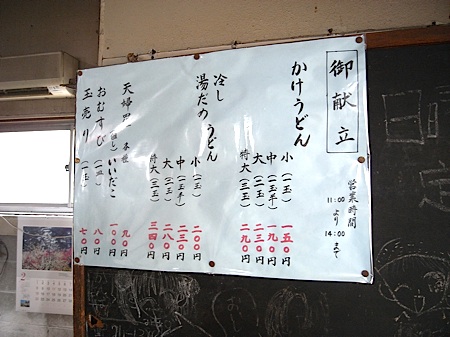 御献立
営業時間
11:00
より
14:00
まで
かけうどん
小(一玉) 一五〇円
中(一玉半) 一九〇円
大(二玉) 二三〇円
特大(三玉) 二九〇円
冷し
湯だめ うどん
小(一玉) 二〇〇円
中(一玉半) 二三〇円
大(二玉) 二八〇円
特大(三玉) 三四〇円
天婦羅 本位 九〇円
いいだこ 一〇〇円
おむすび(一皿) 八〇円
玉売り(一玉) 七〇円